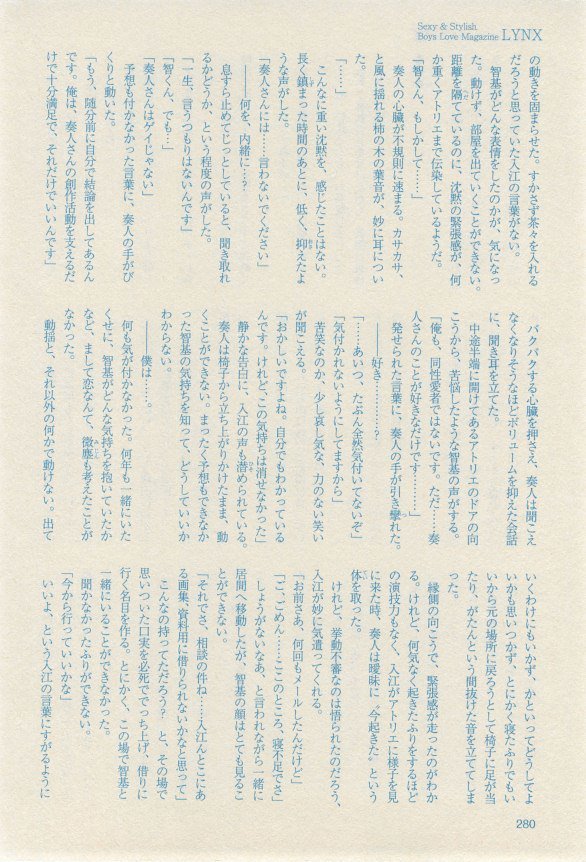 Sexy & Stylish
Boys Love Magazine LYNX
の動きを固まらせた。すかさず茶々を入れる
だろうと思っていた入江の言葉がない。
智基がどんな表情をしたのかが、気になっ
た。動けず、部屋を出ていくことができない。
距離を隔てているのに、沈黙の緊張感が、何
か重くアトリエまで伝染しているようだ。
「智くん、もしかして……」
奏人の心臓が不規則に速まる。カサカサ、
と風に揺れる柿の木の葉音が、妙に耳につい
た。
「……」
こんなに重い沈黙を、感じたことはない。
長く鎮まった時間のあとに、低く、抑えたよ
うな声がした。
「奏人さんには……言わないでください」
――何を、内緒に…?
息すら止めてじっとしていると、聞き取れ
るかどうか、という程度の声がした。
「一生、言うつもりはないんです」
「智くん、でも…」
「奏人さんはゲイじゃない」
予想も付かなかった言葉に、奏人の手がぴ
くりと動いた。
「もう、随分前に自分で結論を出してあるん
です。俺は、奏人さんの創作活動を支えるだ
けで十分満足で、それだけでいいんです」
バクバクする心臓を押さえ、奏人は聞こえ
なくなりそうなほどボリュームを抑えた会話
に、聞き耳を立てた。
中途半端に開けてあるアトリエのドアの向
こうから、苦悩したような智基の声がする。
「俺も、同性愛者ではないです。ただ……奏
人さんのことが好きなだけです…………」
発せられた言葉に、奏人の手が引き攣れた。
――好き…………?
「……あいつ、たぶん全然気付いてないぞ」
「気付かれないようにしてますから」
苦笑なのか、少し哀し気な、力のない笑い
が聞こえる。
「おかしいですよね。自分でもわかっている
んです。けれど、この気持ちは消せなかった」
静かな告白に、入江の声も潜められている。
奏人は椅子から立ち上がりかけたまま、動
くことができない。まったく予想もできなか
った智基の気持ちを知って、どうしていいか
わからない。
――僕は……。
何も気が付かなかった。何年も一緒にいた
くせに、智基がどんな気持ちを抱いていたか
など、まして恋なんて、微塵も考えたことが
なかった。
動揺と、それ以外の何かで動けない。出て
いくわけにもいかず、かといってどうしてよ
いかも思いつかず、とにかく寝たふりでもい
いから元の場所に戻ろうとして椅子に足が当
たり、がたんという間抜けた音を立ててしま
った。
縁側の向こうで、緊張感が走ったのがわか
る。けれど、何気なく起きたふりをするほど
の演技力もなく、入江がアトリエに様子を見
に来た時、奏人は曖昧に〝今起きた〟という
体を取った。
けれど、挙動不審なのは悟られたのだろう、
入江が妙に気遣ってくれる。
「お前さあ、何回もメールしたんだけど」
「ご、ごめん……ここのところ、寝不足でさ」
しょうがないなあ、と言われながら一緒に
居間へ移動したが、智基の顔はとても見るこ
とができない。
「それでさ、相談の件ね……入江んとこにあ
る画集、資料用に借りられないかなと思って」
こんなの持ってただろう? と、その場で
思いついた口実を必死ででっち上げ、借りに
行く名目を作る。とにかく、この場で智基と
一緒にいることができなかった。
聞かなかったふりができない。
「今から行っていいかな」
いいよ、という入江の言葉にすがるように
280